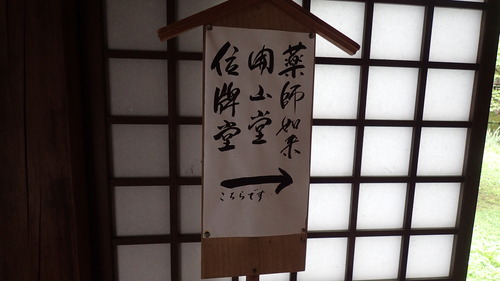 薬師如来
開山堂
位牌堂
こちらです